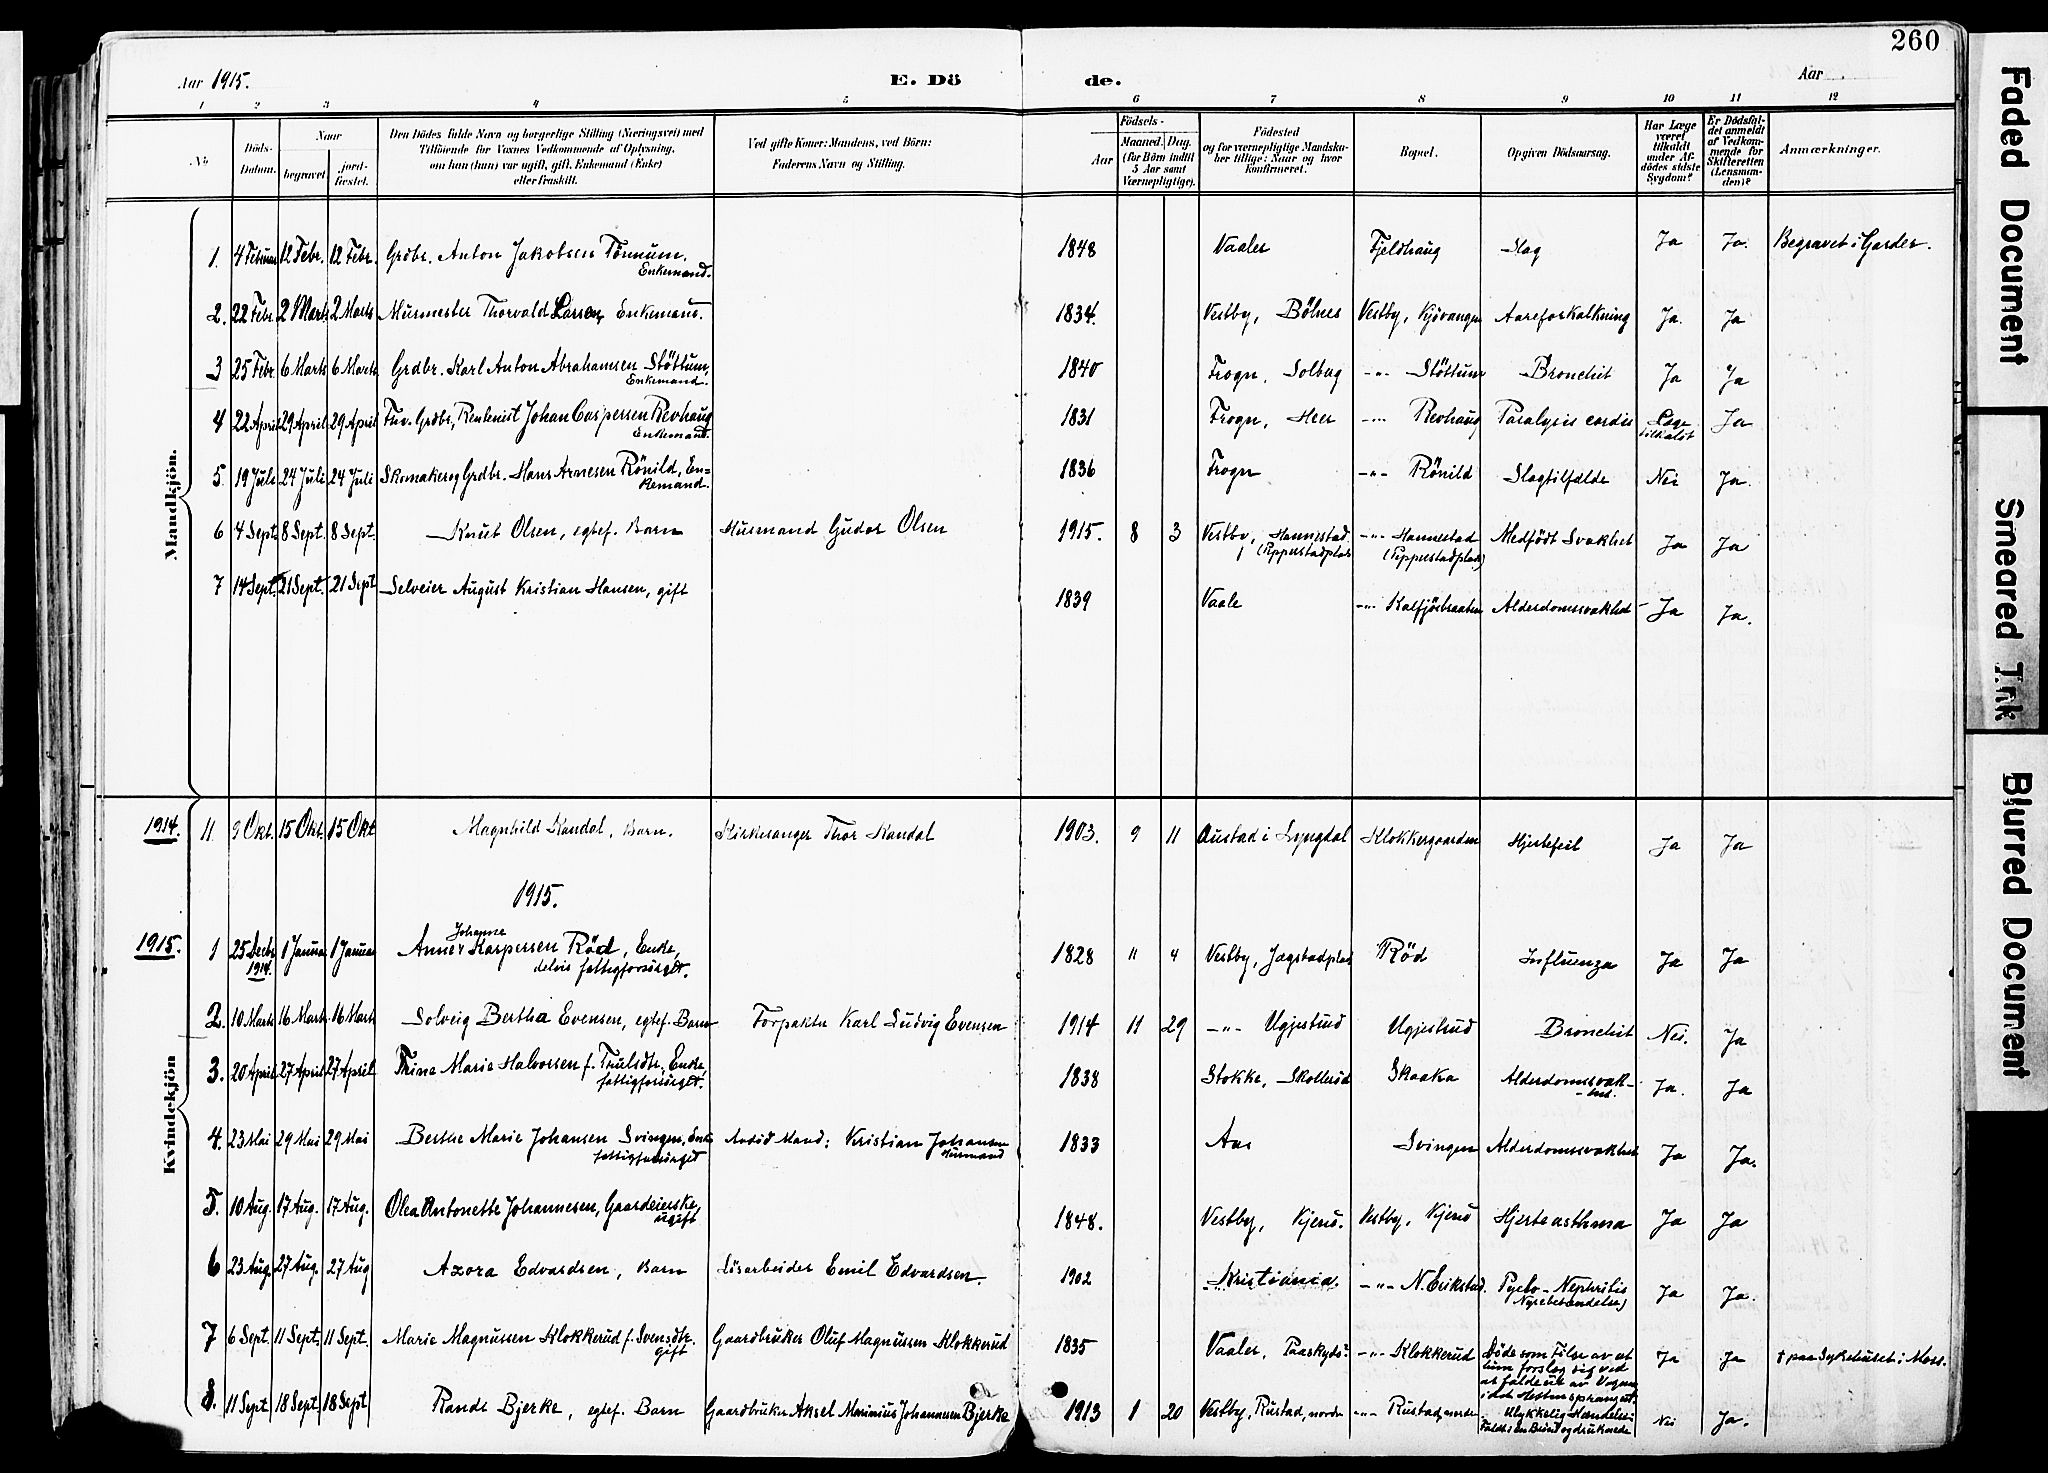 260
Aar 1915.
E. Dö
de.
Aar
1 2 3 4 5 6 7 8 9 10 11 12
No
Döds-Datum.
Naar
begravet
jord-fæstet.
Den Dödes fulde Navn og borgerlige Stilling (Næringsvei) med
Tilföiende for Voxnes Vedkommende af Oplysning,
om han (hun) var ugift, gift, Enkemand (Enke)
eller fraskilt.
Ved gifte Koner: Mandens, ved Börn:
Faderens Navn og Stilling.
Födsels-
Aar
Maaned. Dag.
(for Börn indtil
5 Aar samt
Værnepligtige).
Födested
og for værnepligtige Mandska-
ber tillige: Naar og hvor
konfirmeret.
Bopæl.
Opgiven Dödsaarsag.
Har Læge
været
tilkaldt
under Af-
dödes sidste
Sygdom?
Er Dödsfal-
det anmeldt
af Vedkom-
mende for
Skifteretten
(Lensman-
den)?
Anmærkninger.
Mandkjön.
1. 4 Februar 12 Febr. 12 Febr. Grdbr. Anton Jakobsen Tömum. Enkemand. 1848 Vaaler Fjeldhaug Slag Ja Ja. Begravet i Garder.
2. 22 Febr. 2 Marts 2 Marts Murmester Thorvald Larsen, Enkemand. 1834. Vestby, Bölnes Vestby, Kjövangen Aareforkalkning Ja. Ja
3 25 Febr. 6 Marts 6 Marts Grdbr. Karl Anton Abrahamsen Stöttum, Enkemand. 1840 Frogn, Solbug -"- Stöttum Bronchit Ja Ja
4 22 April 29 April 29 April Fhv. Grdbr, Rentenist Johan Caspersen Revhaug Enkemand. 1831 Frogn, Heer -"- Revhaug Paralysis cordis Læge tilkaldt Ja
5. 19 Juli 24 Juli 24 Juli Skomaker og Grdbr. Hans Arnesen Rönild, En=
kemand. 1836 Frogn -"- Rönild Slagtilfælde Nei Ja.
6 4 Sept. 8 Sept. 8 Sept. Knut Olsen, egtef. Barn Husmand Gudor Olsen 1915. 8 3 Vestby, Hannestad (Pepperstadplads -"- Hannestad (Pepperstadplads) Medfödt Svakhet Ja Ja
7 14 Sept. 21 Sept. 21 Sept Selveier August Kristian Hansen, gift 1839 Vaale -"- Kalfjösbraaten Alderdomssvakhet Ja Ja.
1914. 11 9 Okt. 15 Okt. 15 Okt Magnhild Kandal, Barn. Kirkesanger Thor Kandal 1903. 9 11 Austad i Lyngdal Klokkergaarden Hjertefeil Ja Ja
1915.
Kvindekjön
1915. 1 25 Decbr 1914. 1 Januar 1 Januar Anne Johanne Kaspersen Röd, Enke,
delvis fattigforsörget. 1828 11 4 Vestby, Jagstadplads Röd Influenza Ja Ja
2. 10 Marts 16 Marts 16 Marts Solveig Bertha Evensen, egtef. Barn Forpakter Karl Ludvig Evensen 1914 11 29 -"- Ugjestrud Ugjestrud Bronchit Nei. Ja
3. 20 April 27 April 27 April Trine Marie Halvorsen f. Trulsdtr, Enke,
fattigforsörget. 1838 Stokke, Skollerud Skaaka Alderdomssvak-
het. Ja. Ja
4. 23 Mai 29 Mai 29 Mai Berthe Marie Johansen Svingen, Enke
fattigforsörget Avdöd Mand: Kristian Johansen
Husmand 1833 Aas Svingen Alderdomssvakhet Ja Ja.
5. 10 Aug. 17 Aug. 17 Aug. Olea Antonette Johannesen, Gaardeierske,
ugift 1848. Vestby, Kjenn. Vestby, Kjenn Hjerteasthma Ja Ja
6 23 Aug. 27 Aug. 27 Aug Azora Edvardsen, Barn Lösarbeider Emil Edvardsen. 1902 Kristiania. -"- N. Erikstad. Pyelo-Nephritis
Nyrebetændelse) Ja Ja.
7 6 Sept. 11 Sept. 11 Sept. Marie Magnussen Klokkerud f. Svensdtr.
gift Gaardbruker Oluf Magnussen Klokkerud 1835 Vaaler, Paaskyds -"- Klokkerud Döde som Fölge av at
hun forslog sig ved
at falde ut av Vognen
idet Hesten sprang ut. Ja Ja † paa Sykehuset i Moss.
8. 11 Sept. 18 Sept. 18 Sept Randi Bjerke, egtef. Barn Gaardbruker Aksel Marinius Johannesen Bjerke 1913 1 20 Vestby, Rustad, nordre -"- Rustad, nordre Ulykkelig Hændelse:
Faldt i en Brönd og druknede Nei Ja.
Faded Document
Smeared Ink
Blurred Document